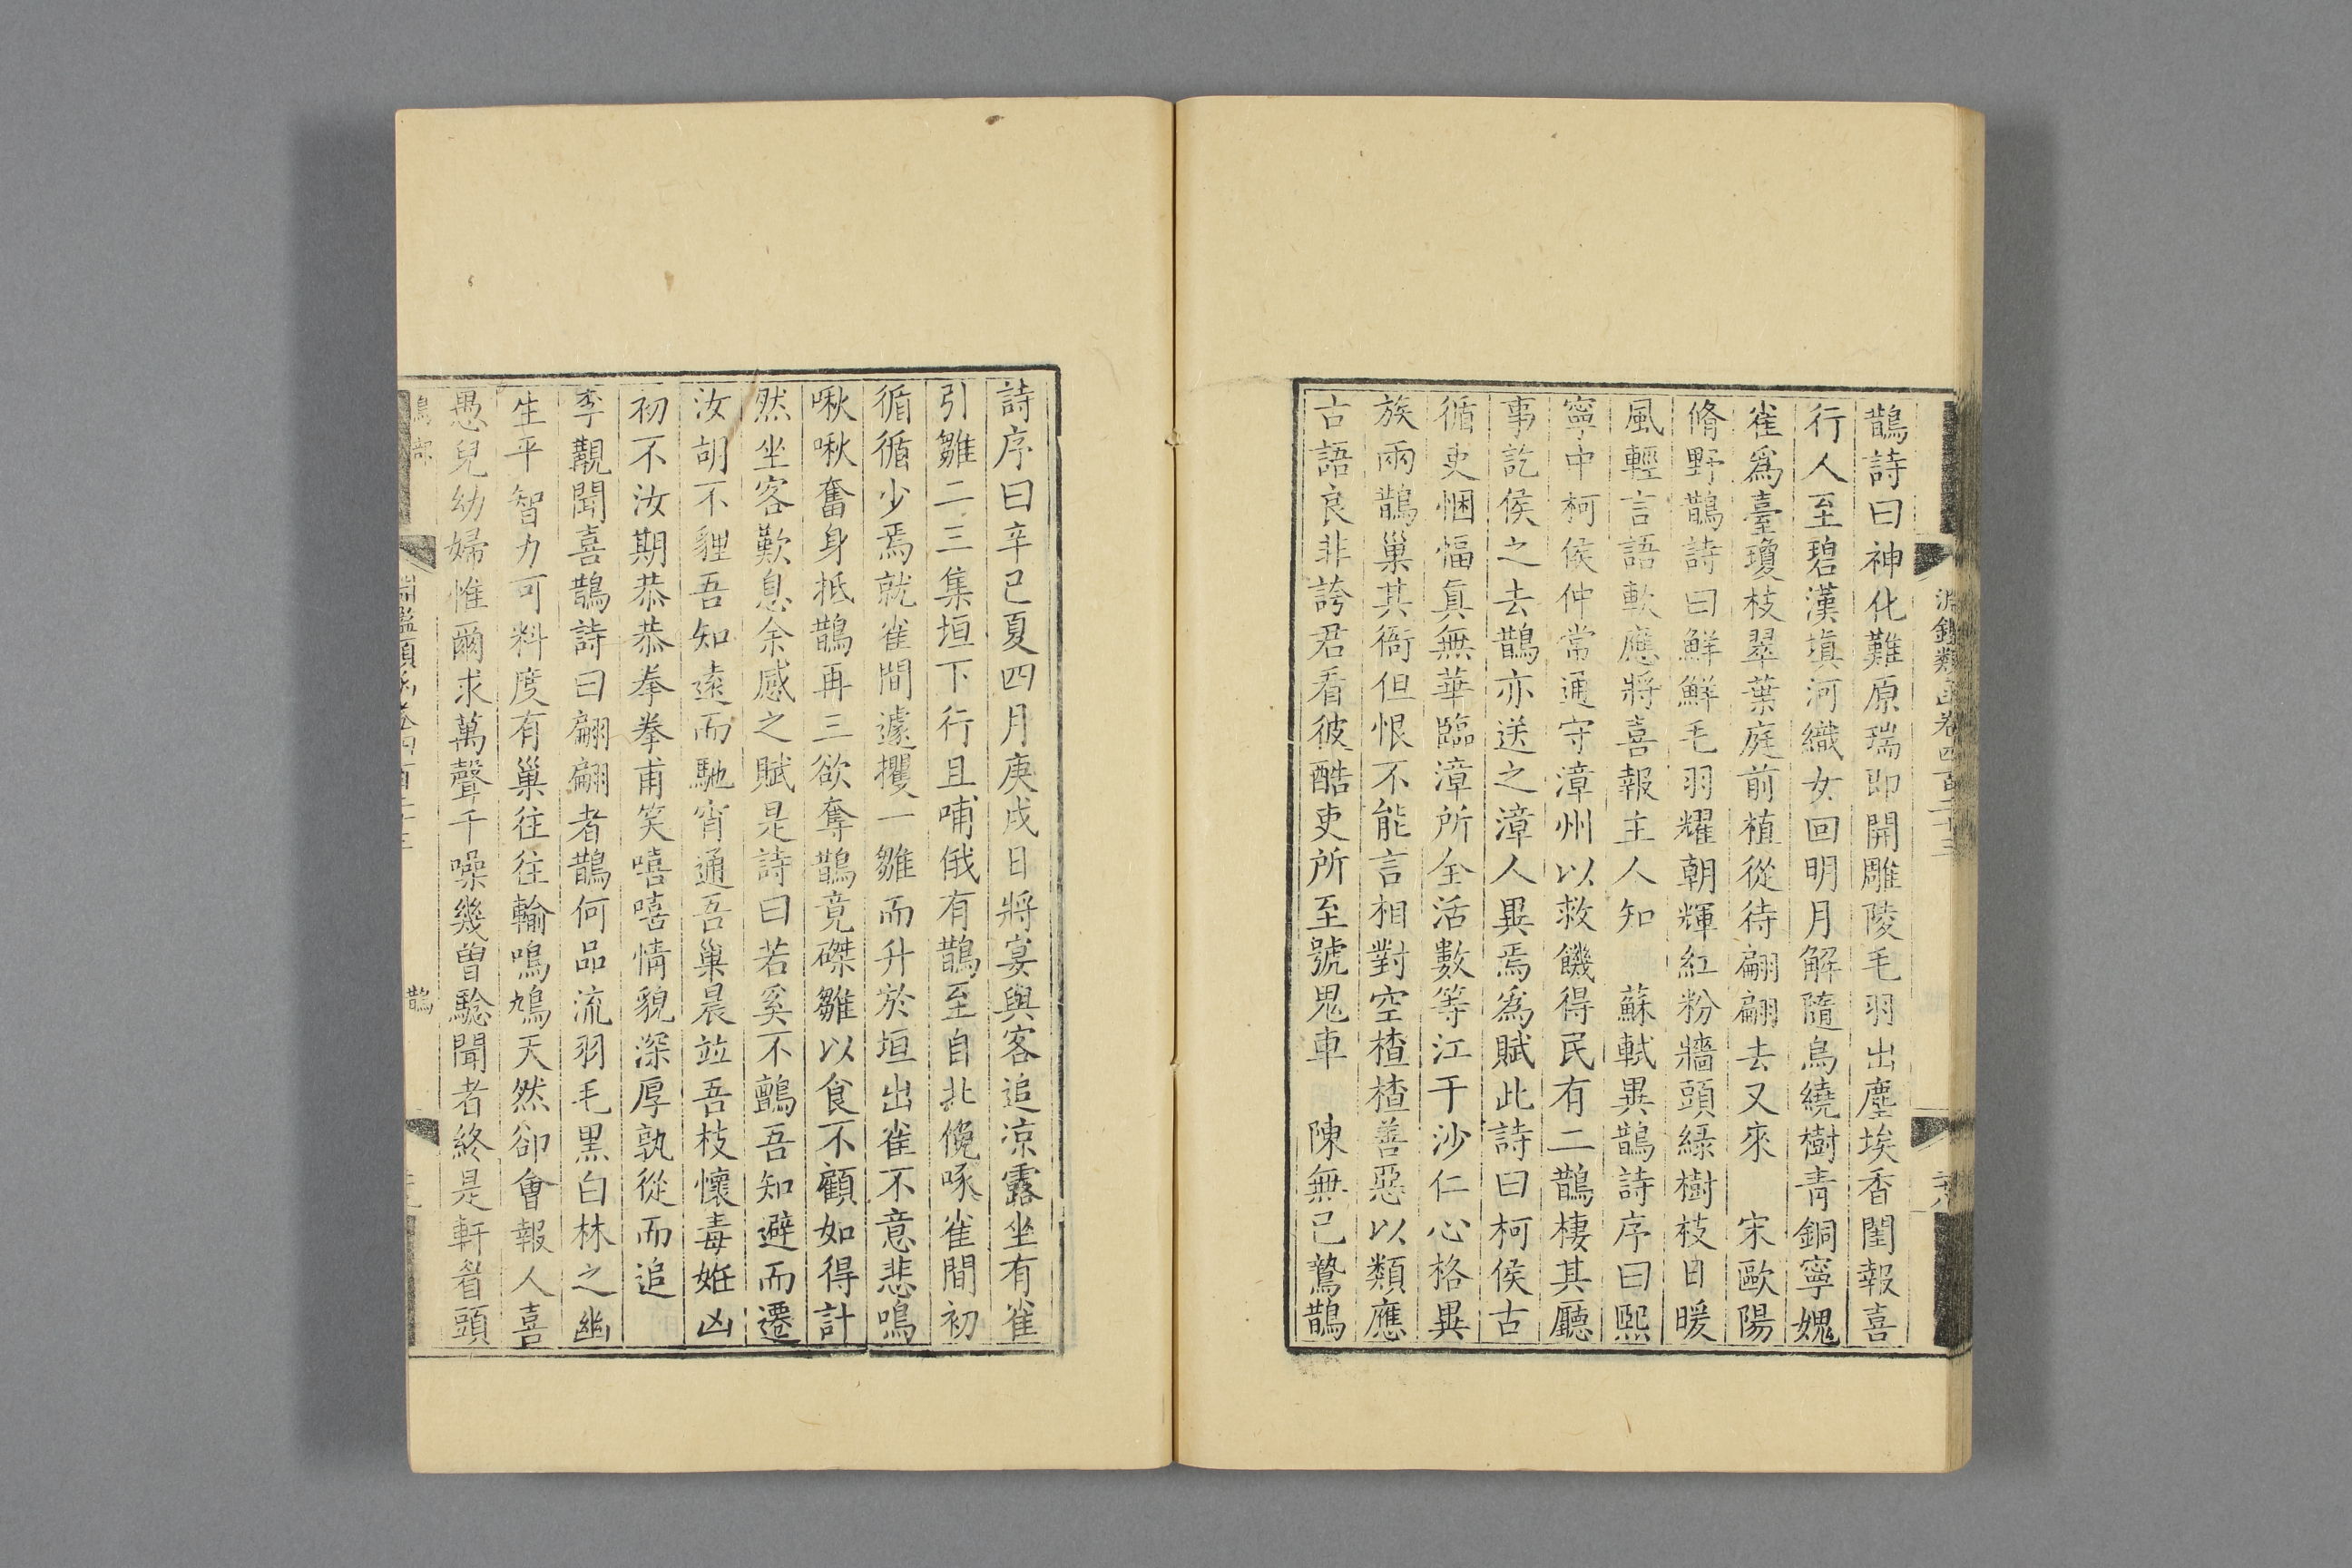 淵鑑類函卷四百二十三
鵲詩曰神化難原瑞卽開雕陵毛羽出塵埃香閨報喜
行人至碧漢塡河織女回明月解隨烏繞樹靑銅寧媿
雀爲臺瓊枝翠葉庭前植從待翩翩去又來　宋歐陽
脩野鵲詩曰鮮鮮毛羽耀朝輝紅粉牆頭綠樹枝日暖
風輕言語軟應將喜報主人知　蘇軾異鵲詩序曰熙
寧中柯侯仲常通守漳州以救饑得民有二鵲棲其廳
事訖侯之去鵲亦送之漳人異焉爲賦此詩曰柯侯古
循吏悃愊眞無華臨漳所全活數等江干沙仁心格異
族兩鵲巢其衙但恨不能言相對空楂楂善惡以類應
古語良非誇君看彼酷吏所至號鬼車　陳無己鷙鵲
詩序曰辛巳夏四月庚戌日將宴與客追涼露坐有雀
引雛二三集垣下行且哺俄有鵲至自北俛啄雀間初
循循少焉就雀間遽攫一雛而升於垣出雀不意悲鳴
啾啾奮身抵鵲再三欲奪鵲竟磔雛以食不顧如得計
然坐客歎息余感之賦是詩曰若奚不鸇吾知避而遷
汝胡不貍吾知遠而馳宵通吾巢晨竝吾枝懷毒姙凶
初不汝期恭恭拳拳甫笑嘻嘻情貌深厚孰從而追
李觀聞喜鵲詩曰翩翩者鵲何品流羽毛黑白林之幽
生平智力可料度有巢往往輸鳴鳩天然卻會報人喜
愚兒幼婦惟爾求萬聲千噪幾曾驗聞者終是軒眉頭
鳥部
鵲